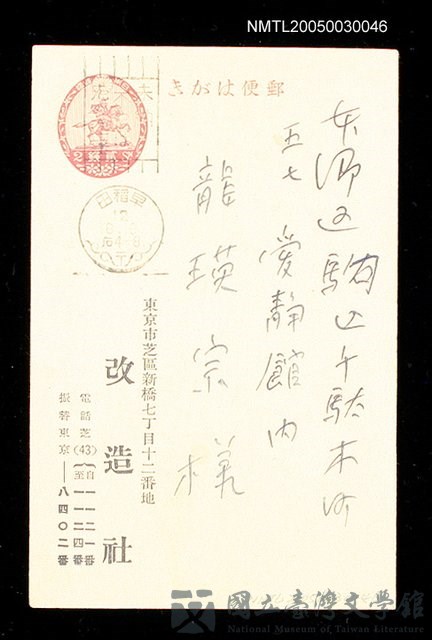 NMTL20050030046
郵便はがき
本郷区駒込千駄木町
五七 愛静館内
龍瑛宗様
東京市芝區新橋七丁目十二番地
改造社
電話芝(43)自一一二一番至一一二四番
振替東京一八四〇二番
國立臺灣文學館
National Museum of Taiwan Literature